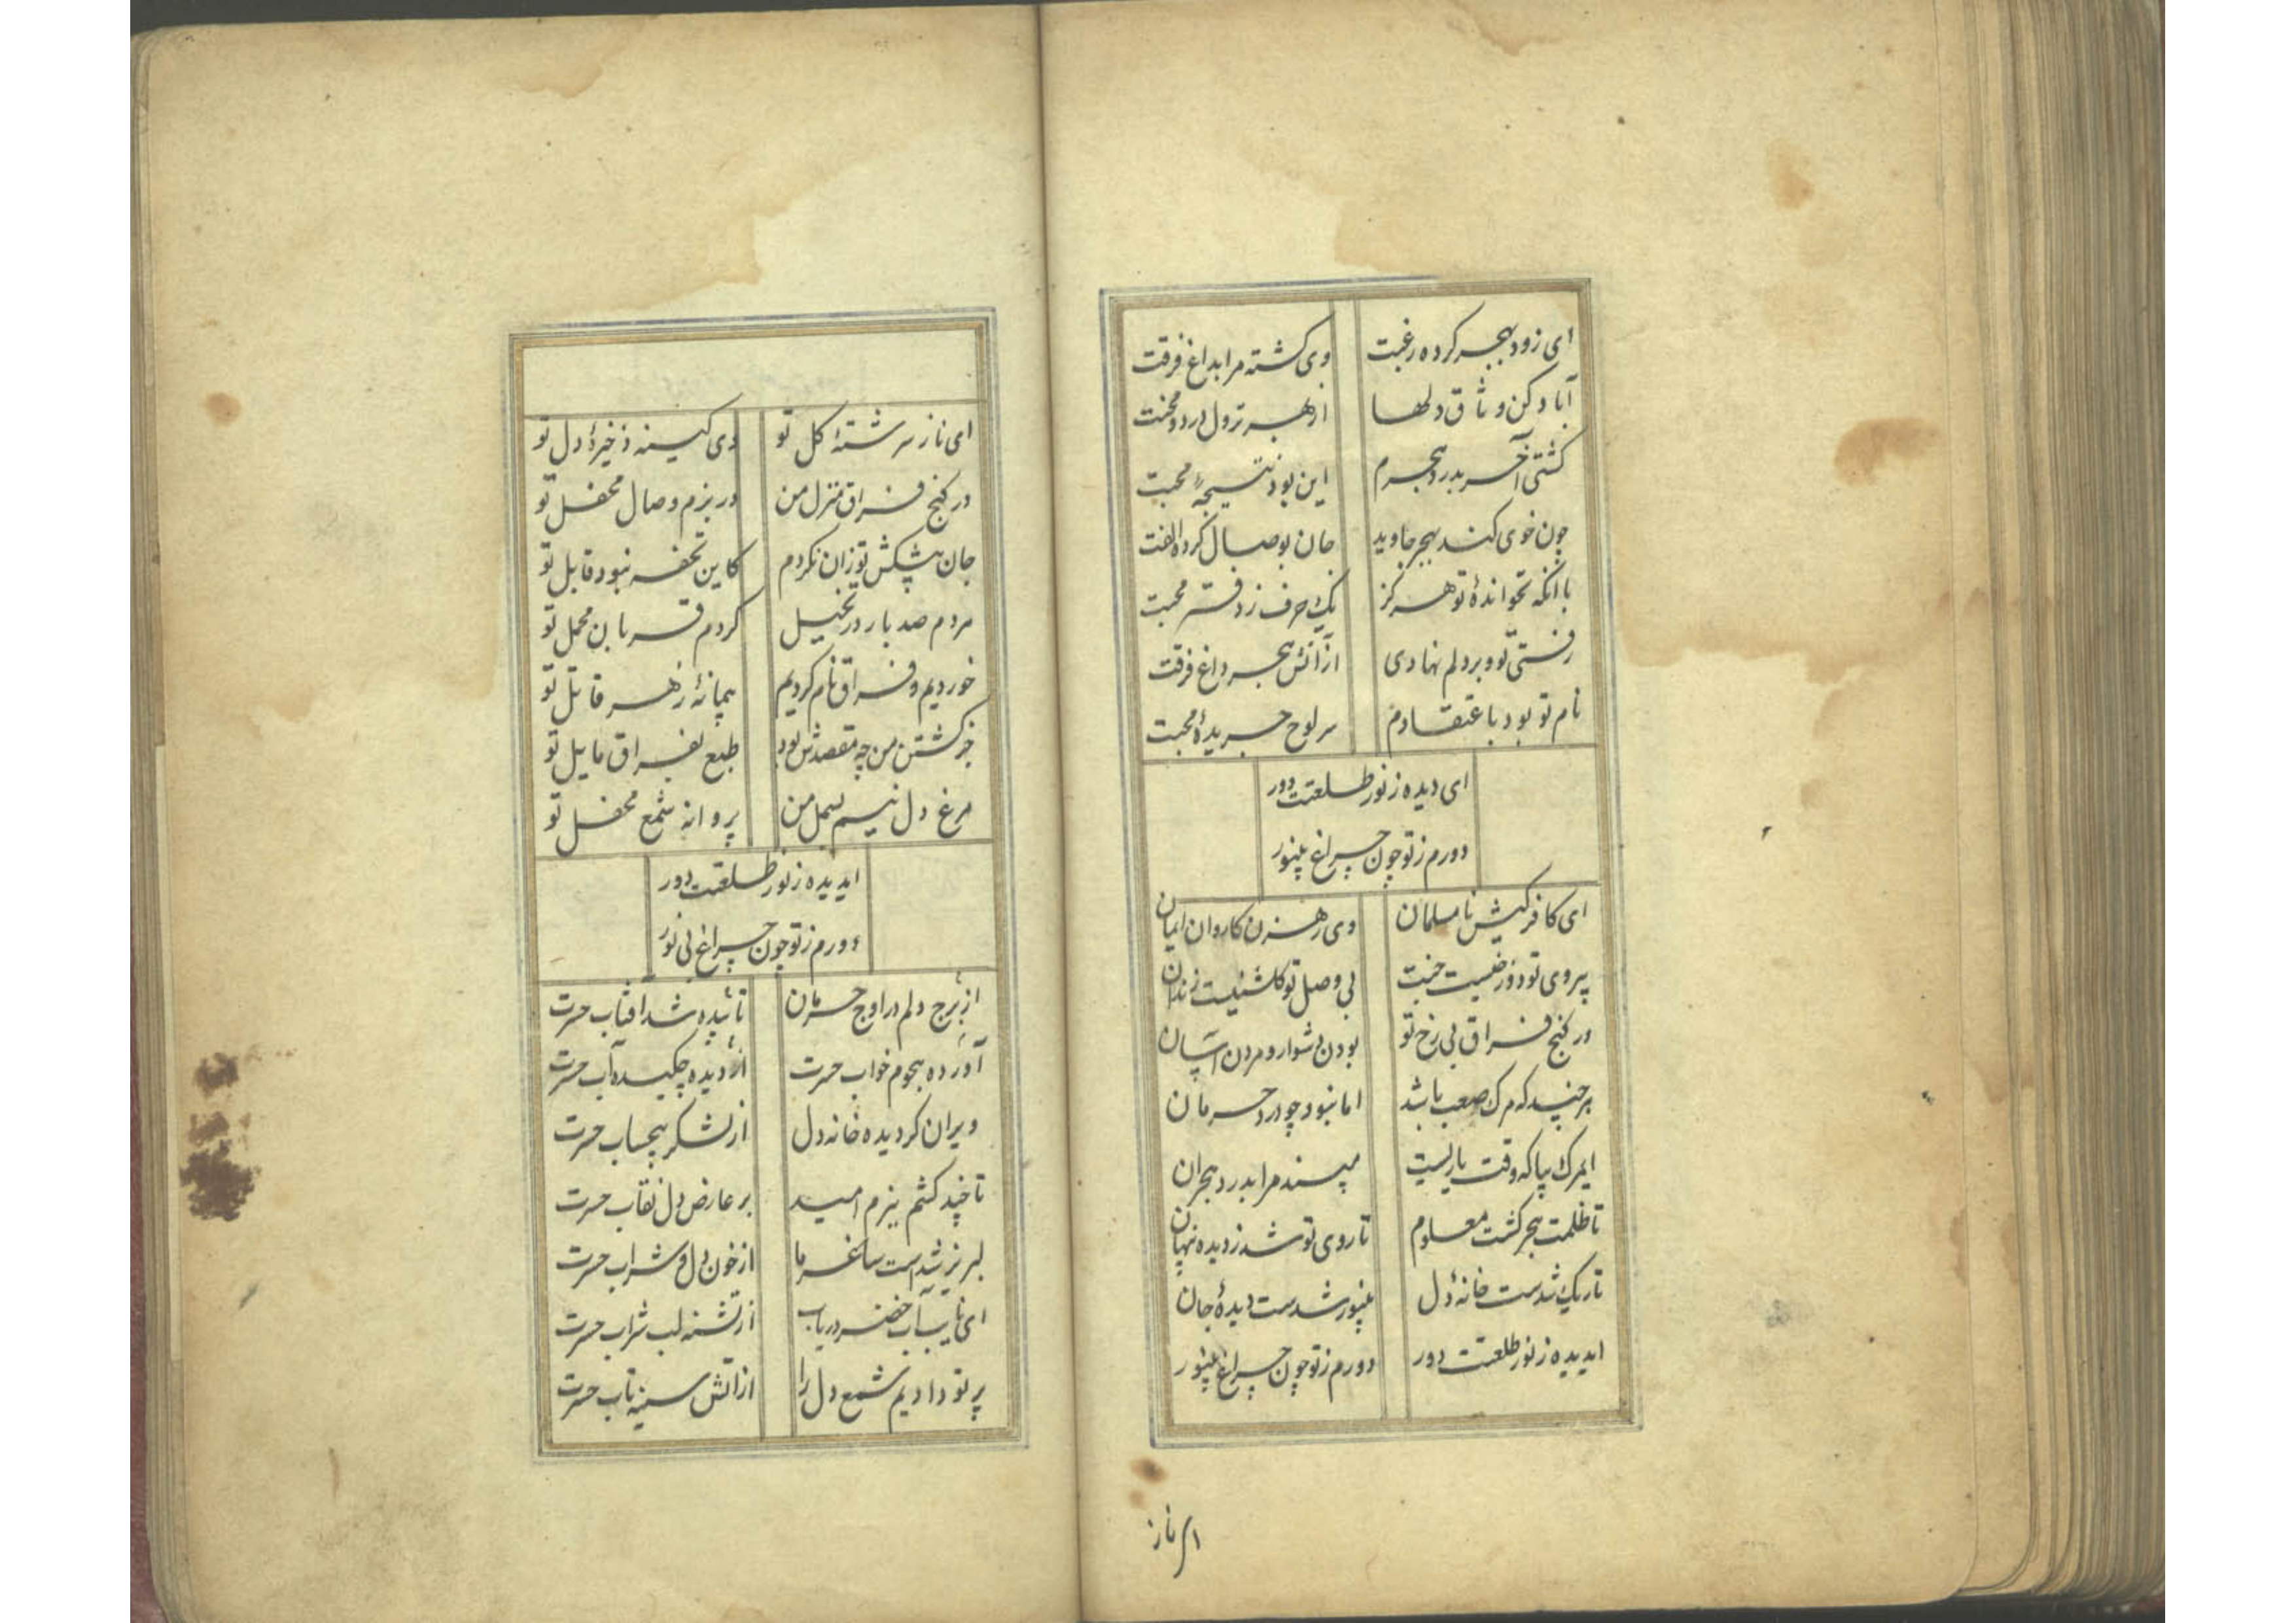 ای زود بهجر کرده رغبت وی کشته مرا بداغ فرقت
آباد کن وثاق دلها از بهر نزول درد و محنت
کشتی آخر بدرد هجرم این بود نتیجهٔ محبت
چون خوی کند بهجر جاوید جان بوصال کرده الفت
با آنکه نخواندهٔ تو هرکز یک حرف ز دفتر محبت
رفتی تو و بر دلم نهادی از آتش هجر داغ فرقت
نام تو بود باعتقادم سر لوح جریدهٔ محبت
ای دیده ز نور طلعتت دور
دورم ز تو چون چراغ بینور
ای کافر کیش نامسلمان وی رهزن کاروان ایمان
بیروی تو دوزخیست جنت بی وصل تو کلشنیست زندان
در کنج فراق بی رخ تو بودن دشوار و مردن آسان
هرچند که مرک صعب باشد اما نبود چو درد حرمان
ایمرک بیا که وقت یاریست مپسند مرا بدرد هجران
تا ظلمت هجر کشت معلوم تا روی تو شد ز دیده پنهان
تاریک شدست خانهٔ دل بینور شدست دیدهٔ جان
ایدیده ز نور طلعتت دور دورم ز تو چون چراغ بینور
ای ناز
ای ناز سرشتهٔ کل تو وی کینه ذخیرهٔ دل تو
در کنج فراق منزل من در بزم وصال محفل تو
جان پیشکش تو زان نکردم کاین تحفه نبود قابل تو
مردم صد بار در تخیل کردم قربان محمل تو
خوردیم و فراق نام کردیم پیمانهٔ زهر قاتل تو
جز کشتن من چه مقصدش بود طبع بفراق مایل تو
مرغ دل نیم بسمل من پروانه شمع محفل تو
ایدیده ز نور طلعتت دور
دورم ز تو چون چراغ بی نور
از برج دلم در اوج حرمان تابیده شد آفتاب حسرت
آورده هجوم خواب حسرت از دیده چکیده آب حسرت
ویران کردیده خانه دل از لشکر بیحساب حسرت
تا چند کشم ببزم امید بر عارض دل نقاب حسرت
لبریز شد است ساغر ما از خون دل و شراب حسرت
ای نایب آب خضر دریاب از تشنه لب شراب حسرت
پرتو دادیم شمع دل را از آتش سینه تاب حسرت